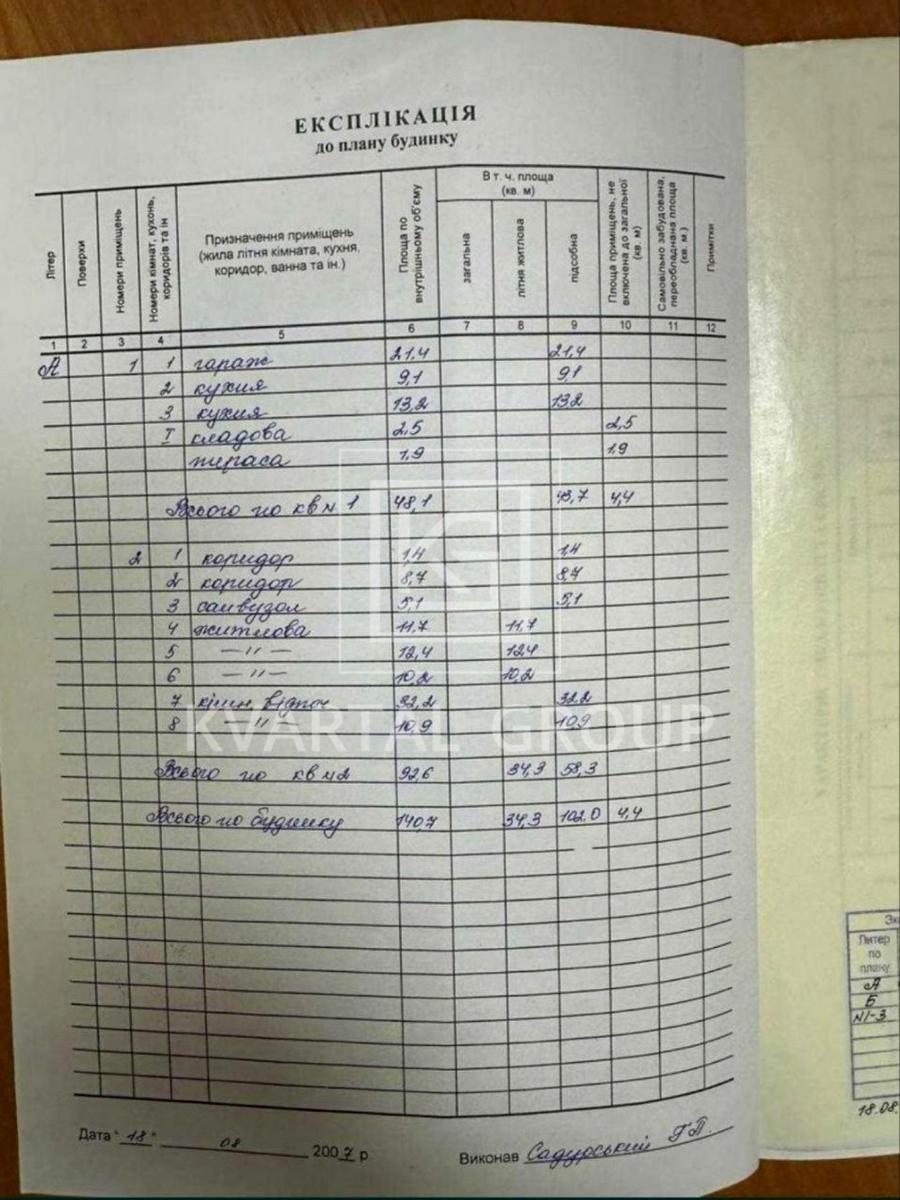 ЕКСПЛІКАЦІЯ
до плану будинку
Літер
Поверхи
Номери приміщень
Номери кімнат, кухонь, коридорів та ін
Призначення приміщень
(жила літня кімната, кухня,
коридор, ванна та ін.)
Площа по внутрішньому об'єму
В т. ч. площа
(кв. м)
загальна
літня житлова
підсобна
Площа приміщень, не включена до загальної (кв. м)
Самовільно забудована, переобладнана площа (кв. м.)
Примітки
1 2 3 4 5 6 7 8 9 10 11 12
А 1 1 гараж 21,4 21,4
2 кухня 9,1 9,1
3 кухня 13,2 13,2
I кладова 2,5 2,5
тераса 1,9 1,9
Всього по кв №1 48,1 43,7 4,4
2 1 коридор 1,4 1,4
2 коридор 8,7 8,7
3 санвузол 5,1 5,1
4 житлова 11,7 11,7
5 —"— 12,4 12,4
6 —"— 10,2 10,2
7 кімн. відпоч 32,2 32,2
8 " 10,9 10,9
KVARTAL GROUP
Всього по кв №2 92,6 34,3 58,3
Всього по будинку 140,7 34,3 102,0 4,4
Дата "18" 08 2007 р
Виконав Садурський Г.П.
Літер
по
плану
А
Б
N1-3
18.08.